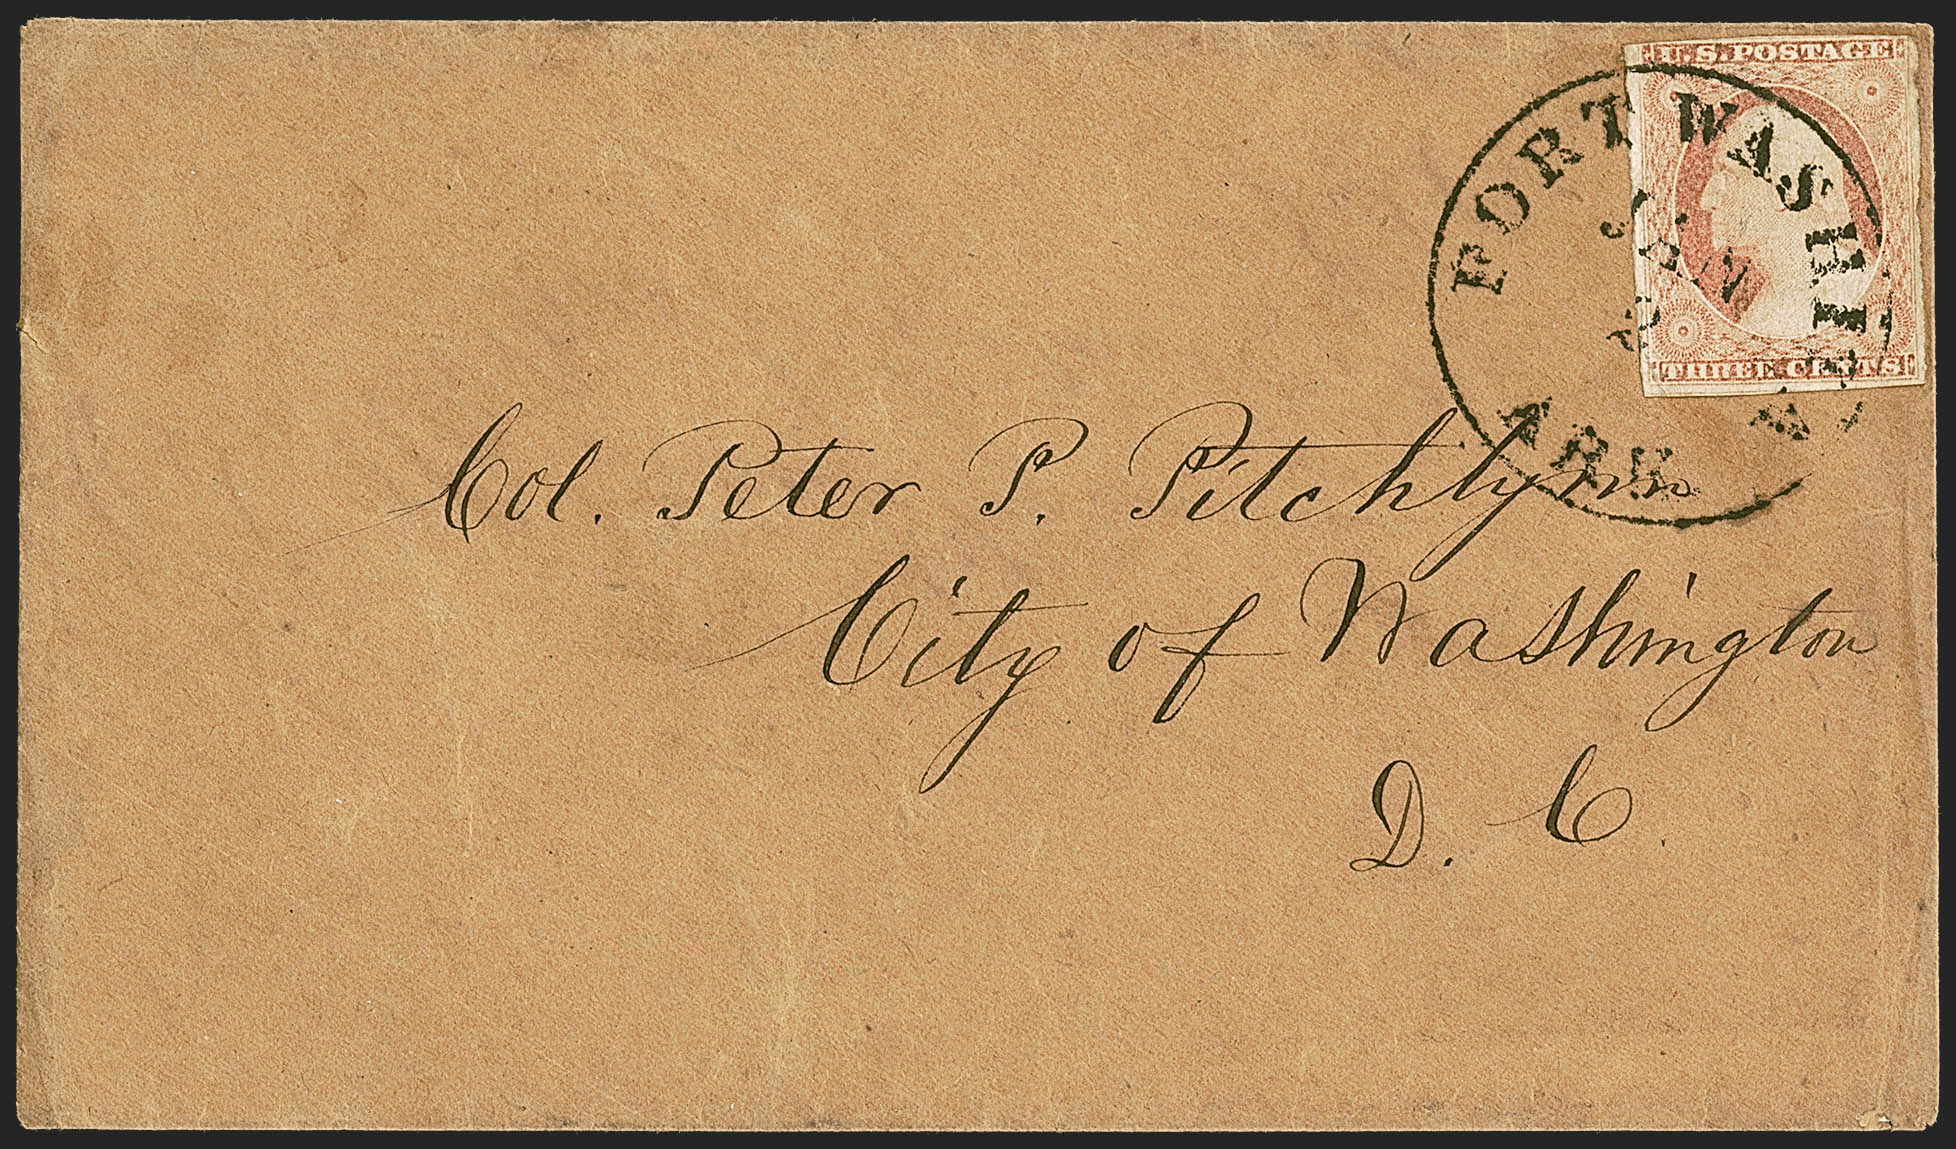 U.S. POSTAGE
THREE CENTS
FORT WASHI
ARK
Col. Peter P. Pitchlynn
City of Washington
D. C.